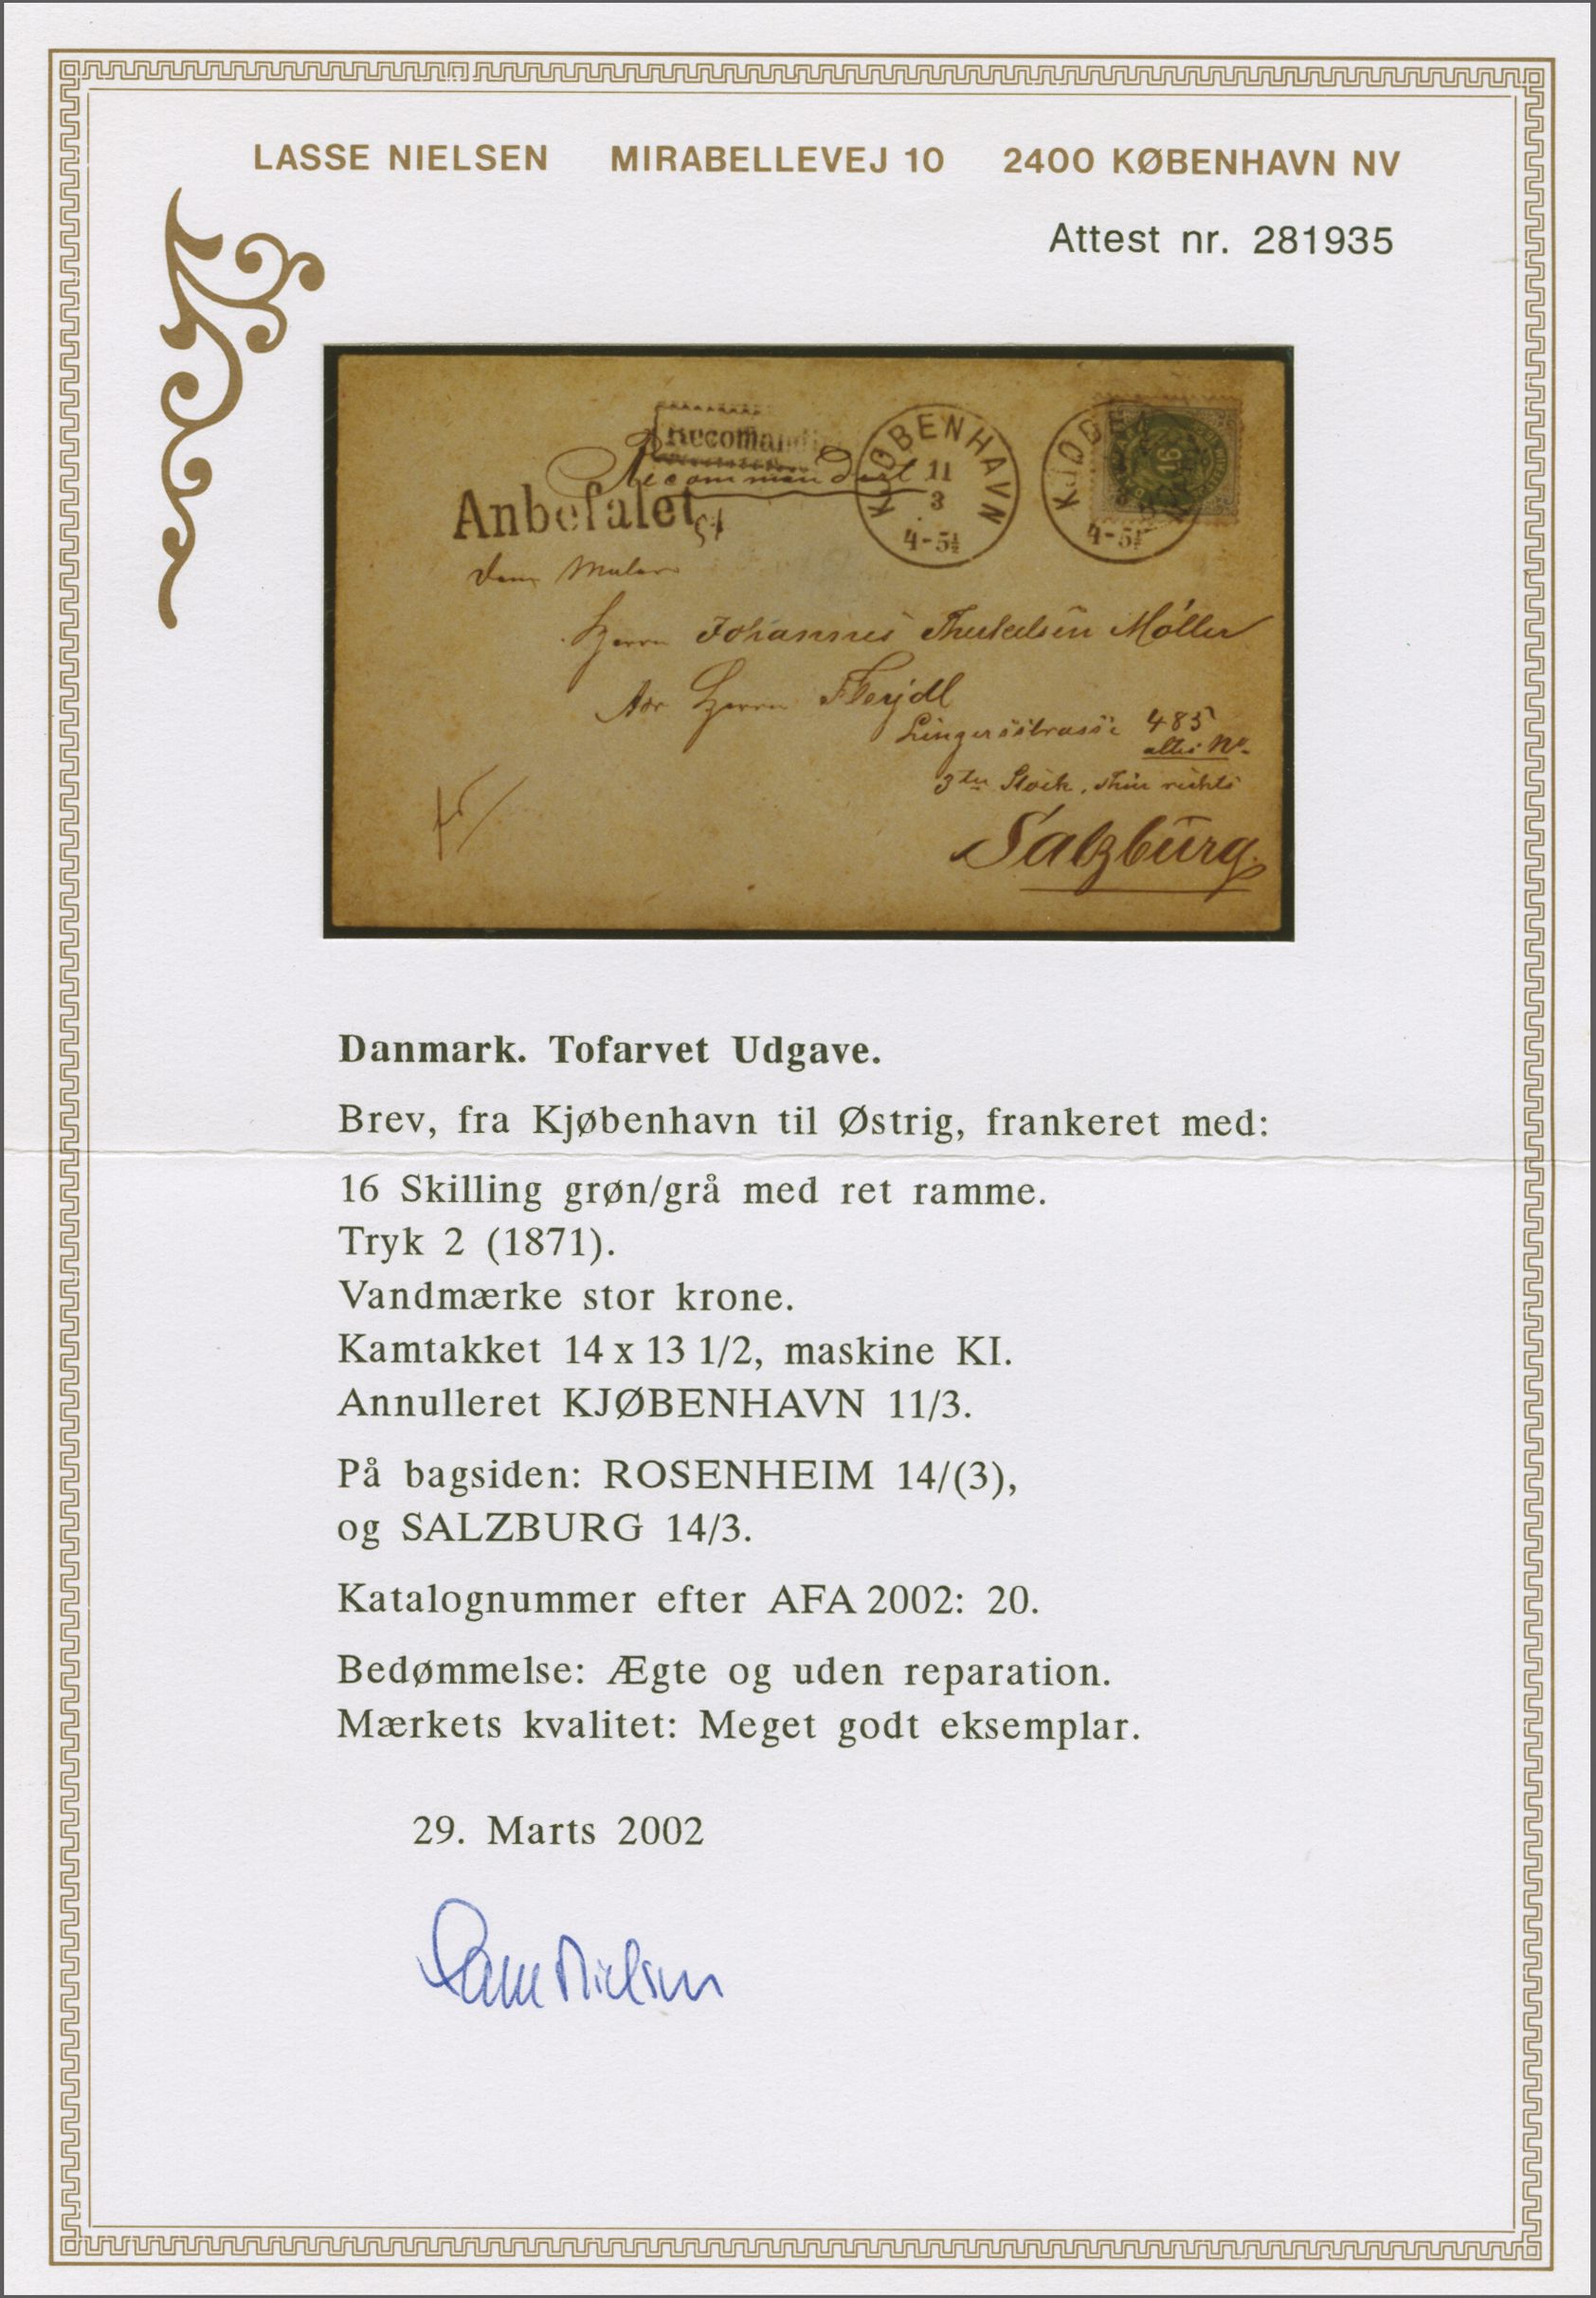 LASSE NIELSEN MIRABELLEVEJ 10 2400 KØBENHAVN NV
Attest nr. 281935
Recommandirt
Anbefalet
KJØBENHAVN
11
3
4-5½
16
4-5½
Herrn Johannes Møller
Herrn
485
3ter Stock, rechts
Salzburg.
Danmark. Tofarvet Udgave.
Brev, fra Kjøbenhavn til Østrig, frankeret med:
16 Skilling grøn/grå med ret ramme.
Tryk 2 (1871).
Vandmærke stor krone.
Kamtakket 14 x 13 1/2, maskine KI.
Annulleret KJØBENHAVN 11/3.
På bagsiden: ROSENHEIM 14/(3),
og SALZBURG 14/3.
Katalognummer efter AFA 2002: 20.
Bedømmelse: Ægte og uden reparation.
Mærkets kvalitet: Meget godt eksemplar.
29. Marts 2002
Lasse Nielsen